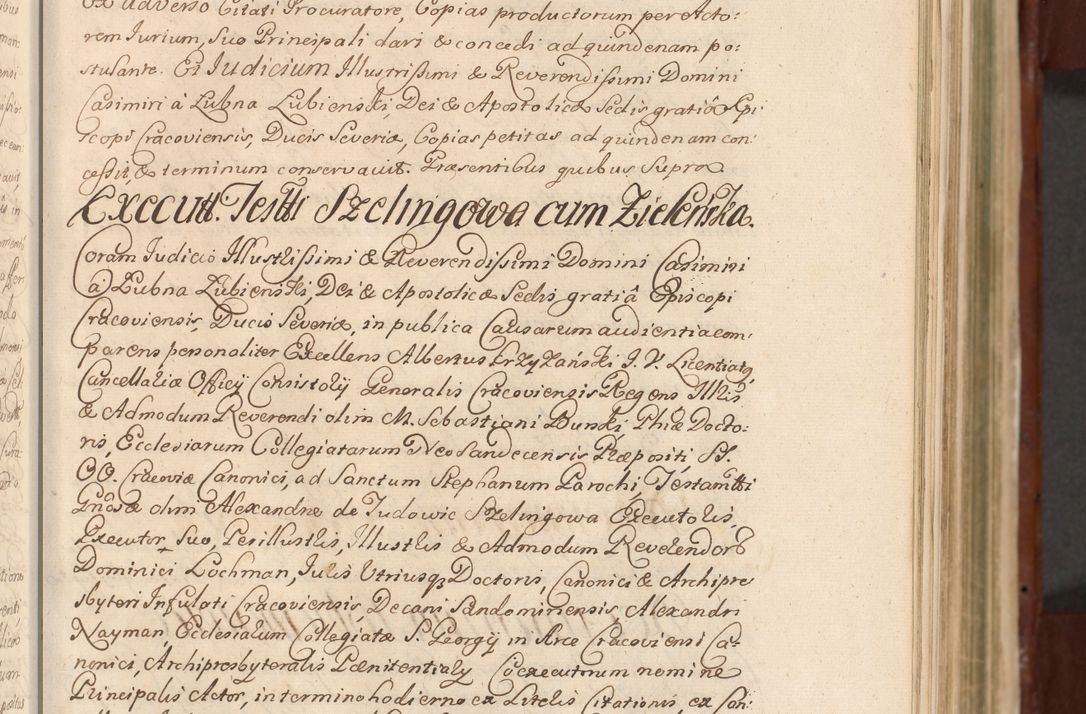 ex adverso Citati Procuratore, Copias productorum per Acto:
rem Iurium, suo Principali dari & concedi ad quindenam po:
stulante. Et Iudicium Illustrissimi & Reverendissimi Domini
Casimiri à Lubna Lubienski, Dei & Apostolicæ Sedis gratiâ Epi
scopi Cracoviensis, Ducis Severiæ, Copias petitas ad quindenam con:
cessit, & terminum conservavit. Præsentibus quibus supra
Executt. Testti Szelingowa cum Zieleńska.
Coram Iudicio Illustrissimi & Reverendissimi Domini Casimiri
à Lubna Lubienski, Dei & Apostolicæ Sedis gratiâ Episcopi
Cracoviensis, Ducis Severiæ, in publica Causarum audientia com:
parens personaliter Excellens Albertus Krzyżański I. V. Licentiatq
Cancellariæ Officij Consistorij Generalis Cracoviensis Regens Illris
& Admodum Reverendi olim M. Sebastiani Dunski, Phiæ Docto:
ris, Ecclesiarum Collegiatarum Neo Sandecensis Præpositi, SS.
OO. Cracoviæ Canonici, ad Sanctum Stephanum Parochi, Testamtti
Gnosæ olim Alexandræ de Iudowic Szelingowa Executoris,
Executor, suo, Perillustris, Illustris & Admodum Reverendorb
Dominici Lochman, Iuris Utriusq Doctoris, Canonici & Archipre
sbyteri Infulati Cracoviensis, Decani Sandomiriensis, Alexandri
Nayman, Ecclesiarum Collegiatæ S. Georgij in Arce Cracoviensi Ca:
nonici, Archipresbyteralis Pœnitentiarij Coexecutorum nomine
Principalis Actor, in termino hodierno ex Literis Citationis, ex Con: